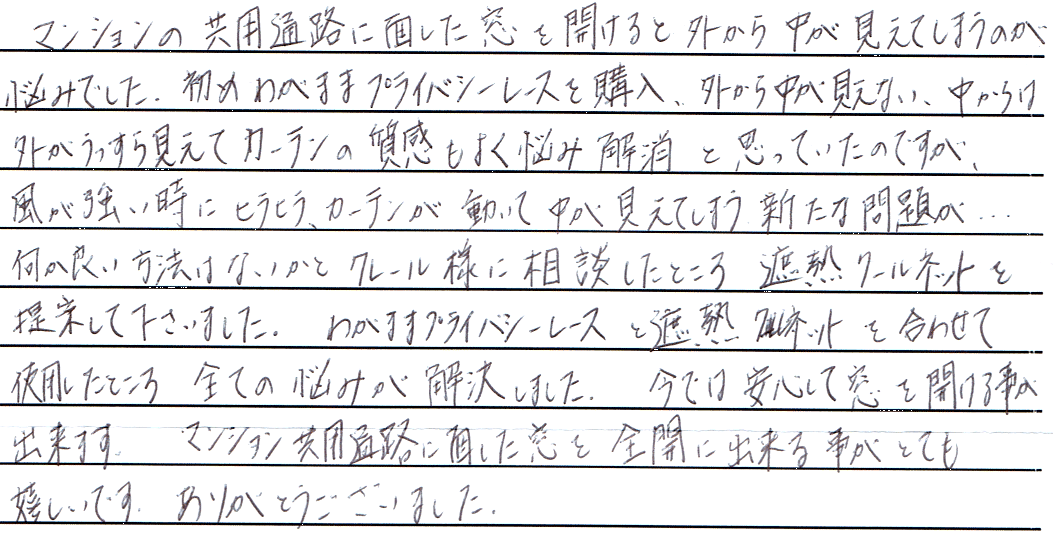 マンションの共用通路に面した窓を開けると外から中が見えてしまうのが
悩みでした。初めわがままプライバシーレースを購入、外から中が見えない、中からは
外がうっすら見えてカーテンの質感もよく悩み解消と思っていたのですが、
風が強い時にヒラヒラ、カーテンが動いて中が見えてしまう新たな問題が…
何か良い方法はないかとクレール様に相談したところ 遮熱クールネットを
提案して下さいました。 わがままプライバシーレースと遮熱クールネットを合わせて
使用したところ 全ての悩みが解決しました。 今では安心して窓を開ける事が
出来ます。 マンション共用通路に面した窓を全開に出来る事がとても
嬉しいです。ありがとうございました。